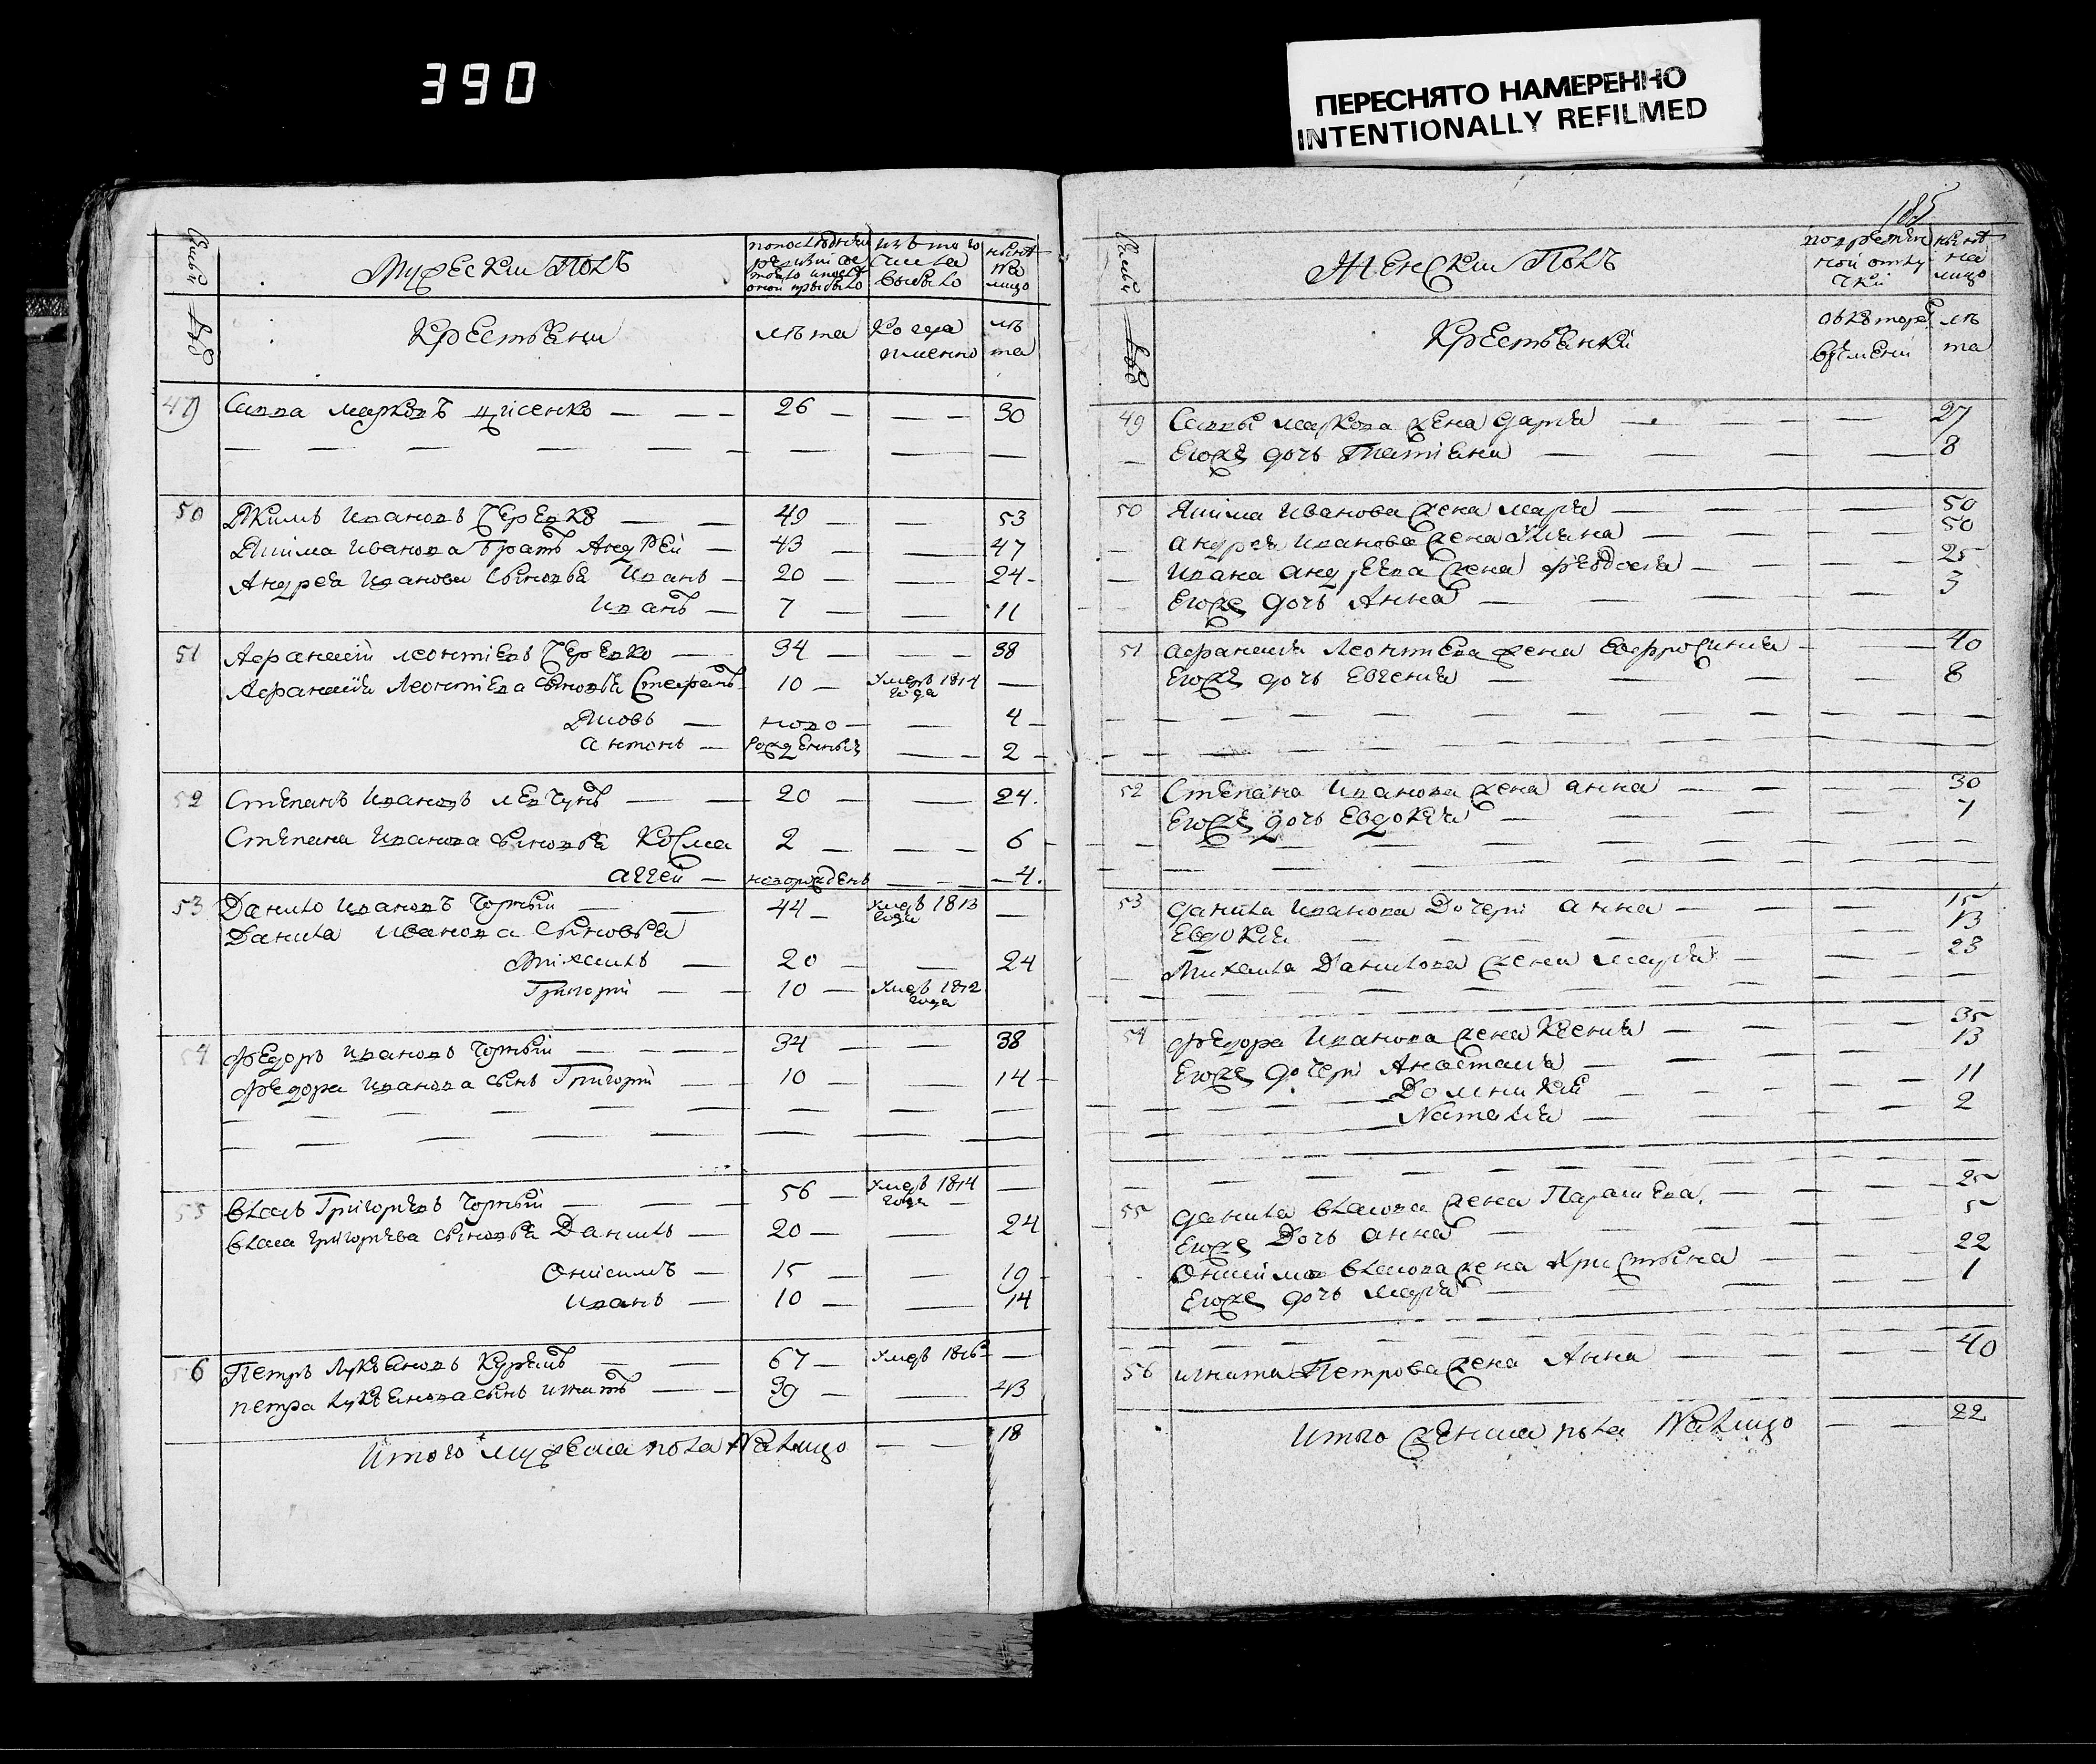 390
ПЕРЕСНЯТО НАМЕРЕННО
INTENTIONALLY REFILMED
185
Мужескій Полъ
нынѣ на лицо
Крестьяни
лѣта
Когда именно
лѣта
49 Савва Марковъ — — — 26 — — — 30
50 Якимъ Ивановъ Черевко — — 49 — — — 53
Якима Иванова братъ Андрей — 43 — — 47
Андрея Иванова сыновья Иванъ — 20 — — 24
Иванъ — 7 — — 11
51 Афанасій Леонтіевъ Черевко — 34 — — 38
Афанасія Леонтіева сыновья Стефанъ 10 — умеръ 1814 года —
Яковъ — ново — — 4
Антонъ — рожденный — — 2
52 Степанъ Ивановъ — — 20 — — 24
Степана Иванова сыновья Козма 2 — — 6
Аггей — новорожденъ — — 4
53 Данило Ивановъ Чорный — — 44 — умеръ 1813 года —
Данила Иванова сыновья
Михаилъ — 20 — — 24
Григорій — — 10 — умеръ 1812 года
54 Федоръ Ивановъ Чорный — — — 34 — — 38
Федора Иванова сынъ Григорій — 10 — — 14
55 Власъ Григорьевъ Чорный — — 56 — умеръ 1814 года —
Власа Григорьева сыновья Данило — 20 — — 24
Онисимъ — 15 — — 19
Иванъ — 10 — — 14
56 Петръ Лукьяновъ — — 67 — умеръ 1816 —
Петра Лукьянова сынъ Игнатъ — — 39 — — 43
Итого мужеска пола на лицо — — 18
Женскій Полъ
нынѣ на лицо
Крестьянки
лѣта
49 Саввы Маркова жена Дарья — — 27
Егоже дочь Татіана — — 8
50 Якима Иванова жена Марья — — 50
Андрея Иванова жена — — 50
Ивана Андреева жена Феодосія — — 25
Егоже дочь Анна — — 3
51 Афанасія Леонтіева жена Евфросинія — — 40
Егоже дочь Евгенія — — 8
52 Степана Иванова жена Анна — — 30
Егоже дочь Евдокія — — 1
53 Данила Иванова дочери Анна — — 15
Евдокія — — 13
Михаила Данилова жена Марья — — 23
54 Федора Иванова жена Ксенія — — 35
Егоже дочери Анастасія — — 13
Домникія — — 11
Наталія — — 2
55 Данила Власова жена Параскева — — 25
Егоже дочь Анна — — 5
Онисима Власова жена Христина — — 22
Егоже дочь Марья — — 1
56 Игната Петрова жена Анна — — 40
Итого женска пола на лицо — — 22